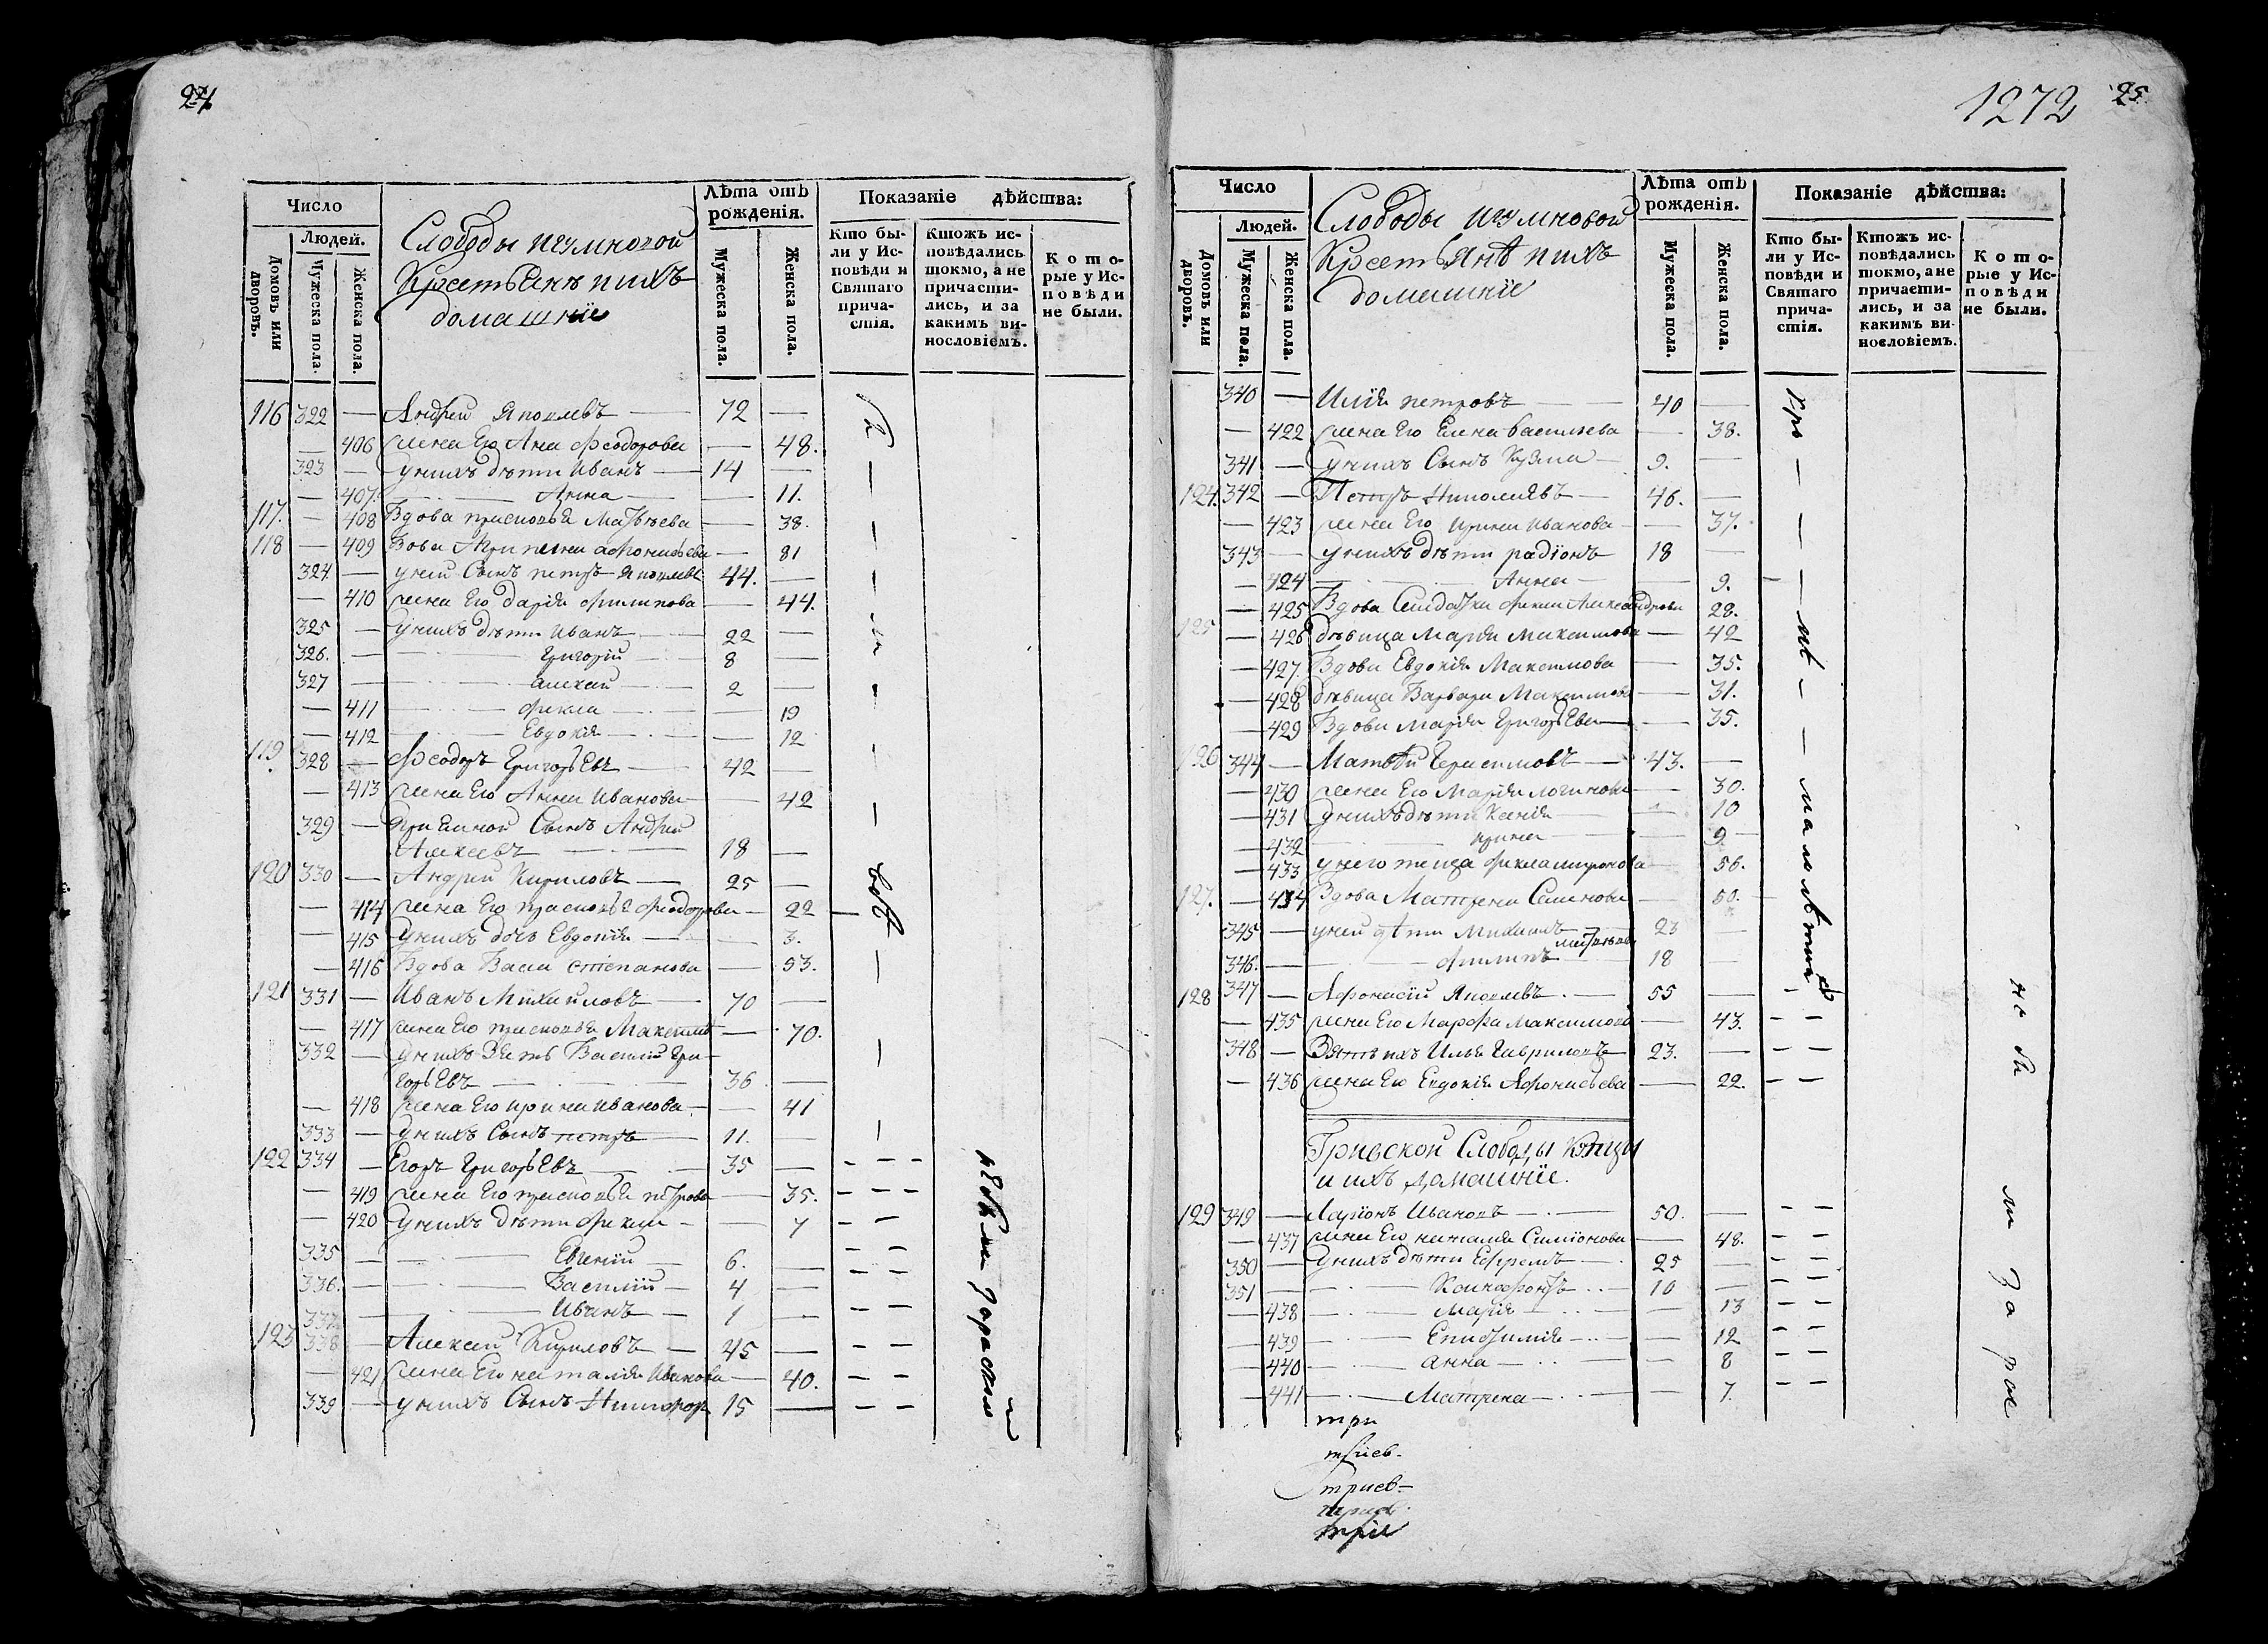 24
Число
Людей.
Домовъ или дворовъ.
Мужеска пола.
Женска пола.
Слободы игумновой
Крестьянъ и ихъ
домашніе
Лѣта отъ рожденія.
Мужеска пола.
Женска пола.
Показаніе дѣйства:
Кто были у Исповѣди и Святаго причастія.
Ктожъ исповѣдались токмо, а не причастились, и за какимъ винословіемъ.
Которые у Исповѣди не были.
116 322 — Андрей Яковлевъ — 72 —
— 406 жена Его Ана Феодорова — 48.
323 — У нихъ дѣти Иванъ — 14 —
— 407. — Анна — 11.
117. — 408 Вдова прасковья Матвѣева — 38.
118 — 409 Вова Агрипена афонасьева — 81
324. — у ней Сынъ петръ Яковлевъ 44. —
— 410 жена Его дарія филипова — 44.
325 — У нихъ дѣти Иванъ — 22 —
326. — Григорій — 8 —
327 — алексей — 2 —
— 411 — фекла — 19
— 412 — Евдокія — 12
119. 328 — Феодоръ ГригорьЕвъ — 42 —
— 413 жена Его Анна Иванова — 42
329 — Приемной Сынъ Андрей
Алексеевъ — 18 —
120 330 — Андрей Кириловъ — 25 —
— 414 жена Его прасковья феодорова — 22
— 415 У нихъ дочь Евдокія — 3.
— 416 Вдова Васа степанова — 53.
121 331 — Иванъ Михайловъ — 70 —
— 417 жена Его прасковья Максимо — 70.
332 — У нихъ Зять Василій Гри-
горьЕвъ — 36 —
— 418 жена Его ирина иванова — 41
333 — У нихъ Сынъ петръ — 11. —
122 334 — Егоръ ГригорьЕвъ — 35 —
— 419 жена Его прасковья петрова — 35.
— 420 У нихъ дѣти фекла — 7
335 — Евгений — 6. —
336. — Василий — 4 —
337 — Иванъ — 1 —
123 338 — Алексей Кириловъ — 45 —
— 421 жена Его наталия Иванова — 40.
339 — у нихъ Сынъ Никифор 15 —
1272
25.
Число
Людей.
Домовъ или дворовъ.
Мужеска пола.
Женска пола.
Слободы игумновой
Крестьянѣ и ихъ
домашніе
Лѣта отъ рожденія.
Мужеска пола.
Женска пола.
Показаніе дѣйства:
Кто были у Исповѣди и Святаго причастія.
Ктожъ исповѣдались токмо, а не причастились, и за какимъ винословіемъ.
Которые у Исповѣди не были.
340 — Илія петровъ — 40 —
— 422 жена Его Елена васильева — 38.
341 — У нихъ Сынъ Кузма — 9. —
124. 342 — Петръ Николаевъ — 46. —
— 423 жена Его Ирина Иванова — 37.
343 — У нихъ дѣти радіонъ 18 —
— 424 — Анна — 9.
— 425 Вдова Салдатка фекла Александрова 28.
125 — 426 дѣвица Марія Максимова — 42
— 427. Вдова Евдокія Максимова — 35.
— 428 дѣвица Варвара Максимова — 31.
— 429 Вдова Марія ГригорьЕва — 35.
126 344 — Матвѣй Герасимовъ — 43. —
— 430 жена Его Марія логинова — 30.
— 431 У нихъ дѣти Ксенія — 10
— 432 ирина — 9
— 433 у него теща фекла миронова 56.
127. — 434 Вдова Матрена Семенова — 50.
345 — у ней дѣти Михаилъ — 23 —
346. — филипъ 18 —
128 347 — Афонасій Яковлевъ — 55 —
— 435 жена Его Марфа Максимова — 43.
348 — Зять ихъ Илья Гавриловъ 23. —
— 436 жена Его Евдокія Афонасьева — 22.
Слободы
и ихъ домашніе.
129 349 — Ларіонъ Ивановъ — 50. —
— 437 жена Его наталія Симіонова — 48.
350 — У нихъ дѣти Ефремъ — 25 —
351 — 10 —
— 438 — Марія — 13
— 439 — 12
— 440 — анна — 8
— 441 — Матрена — 7.
три
триев-
трие